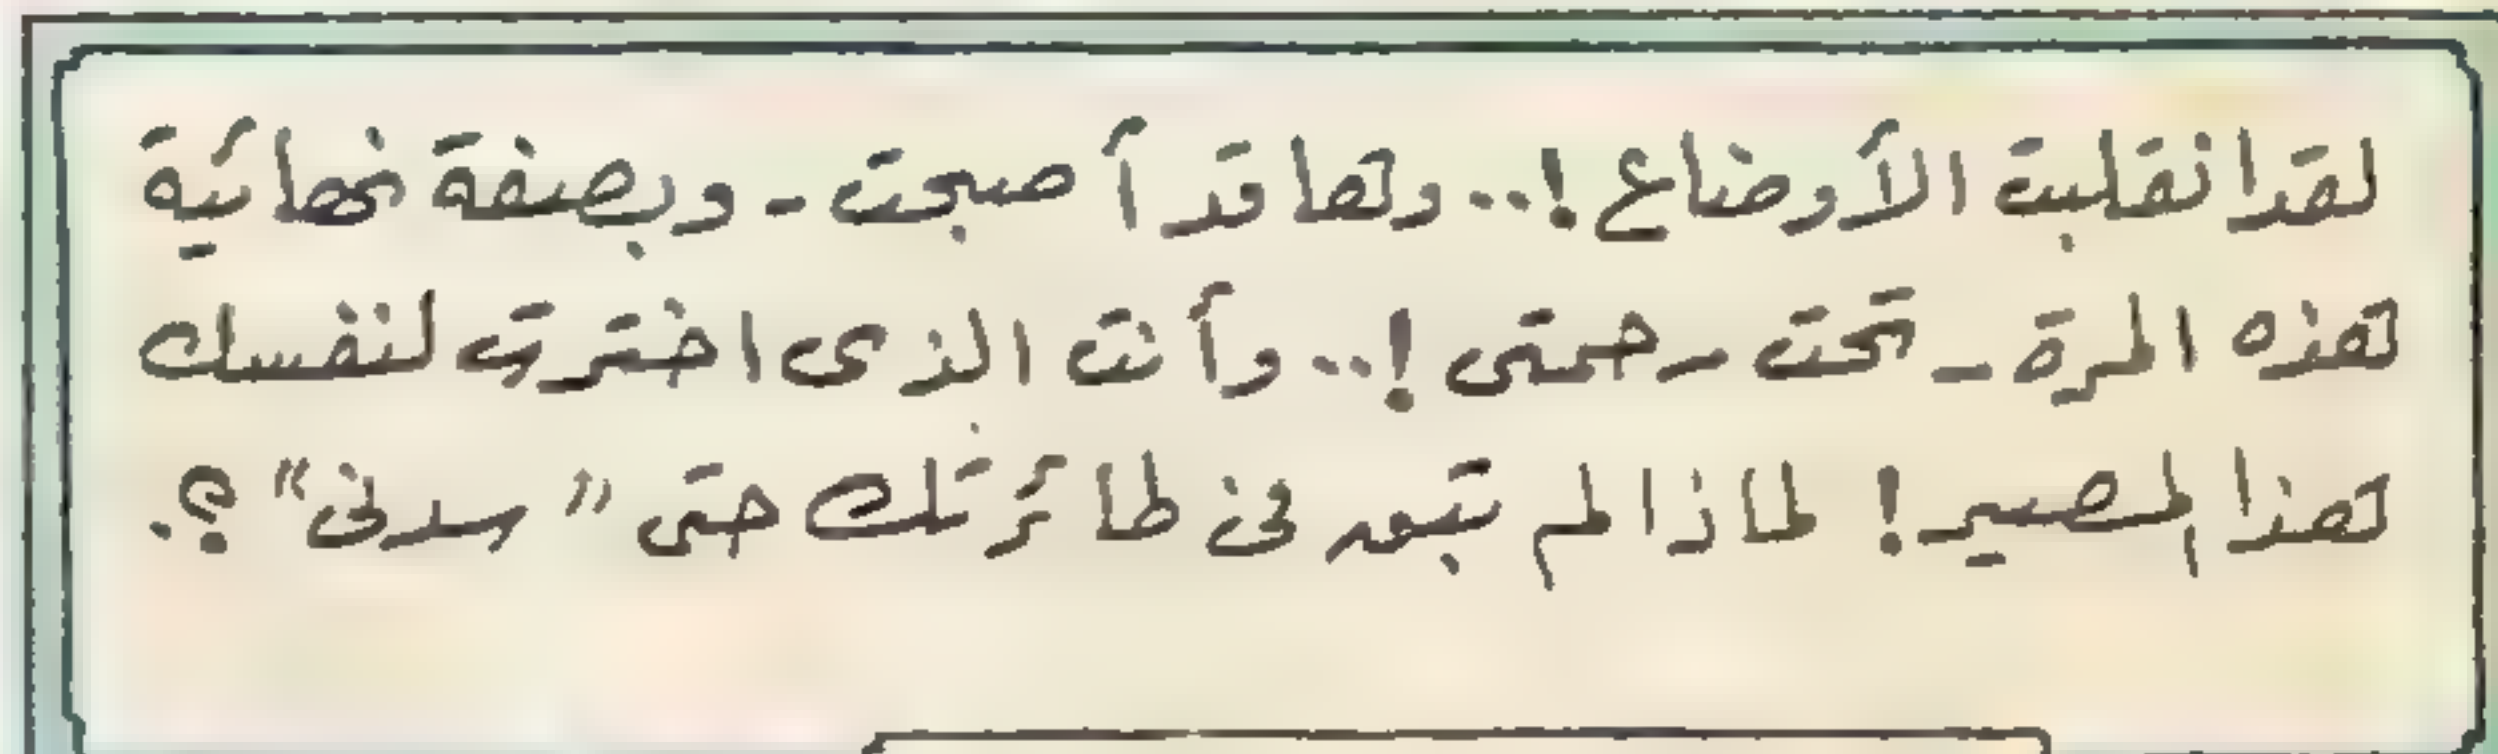 لقد انقلبت الأوضاع !.. وها قد أصبحت - وبصفة نهائية
هذه المرة - تحت رحمتى !.. وأنت الذى اخترت لنفسك
هذا المصير ! لماذا لم تبعد فى طائرتك حتى " سدنى " ؟.